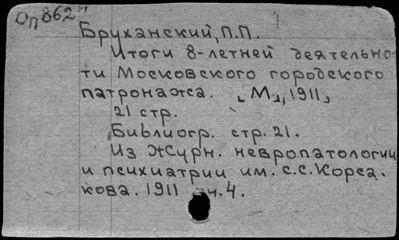 Оп 862
Бруханский, П.П.
Итоги 8-летней деятельнос-
ти Московского городского
патронажа. [М], 1911,
21 стр.
Библиогр. стр. 21.
Из Журн. невропатологии
и психиатрии им. С.С.Корса-
кова. 1911 кн. 4.